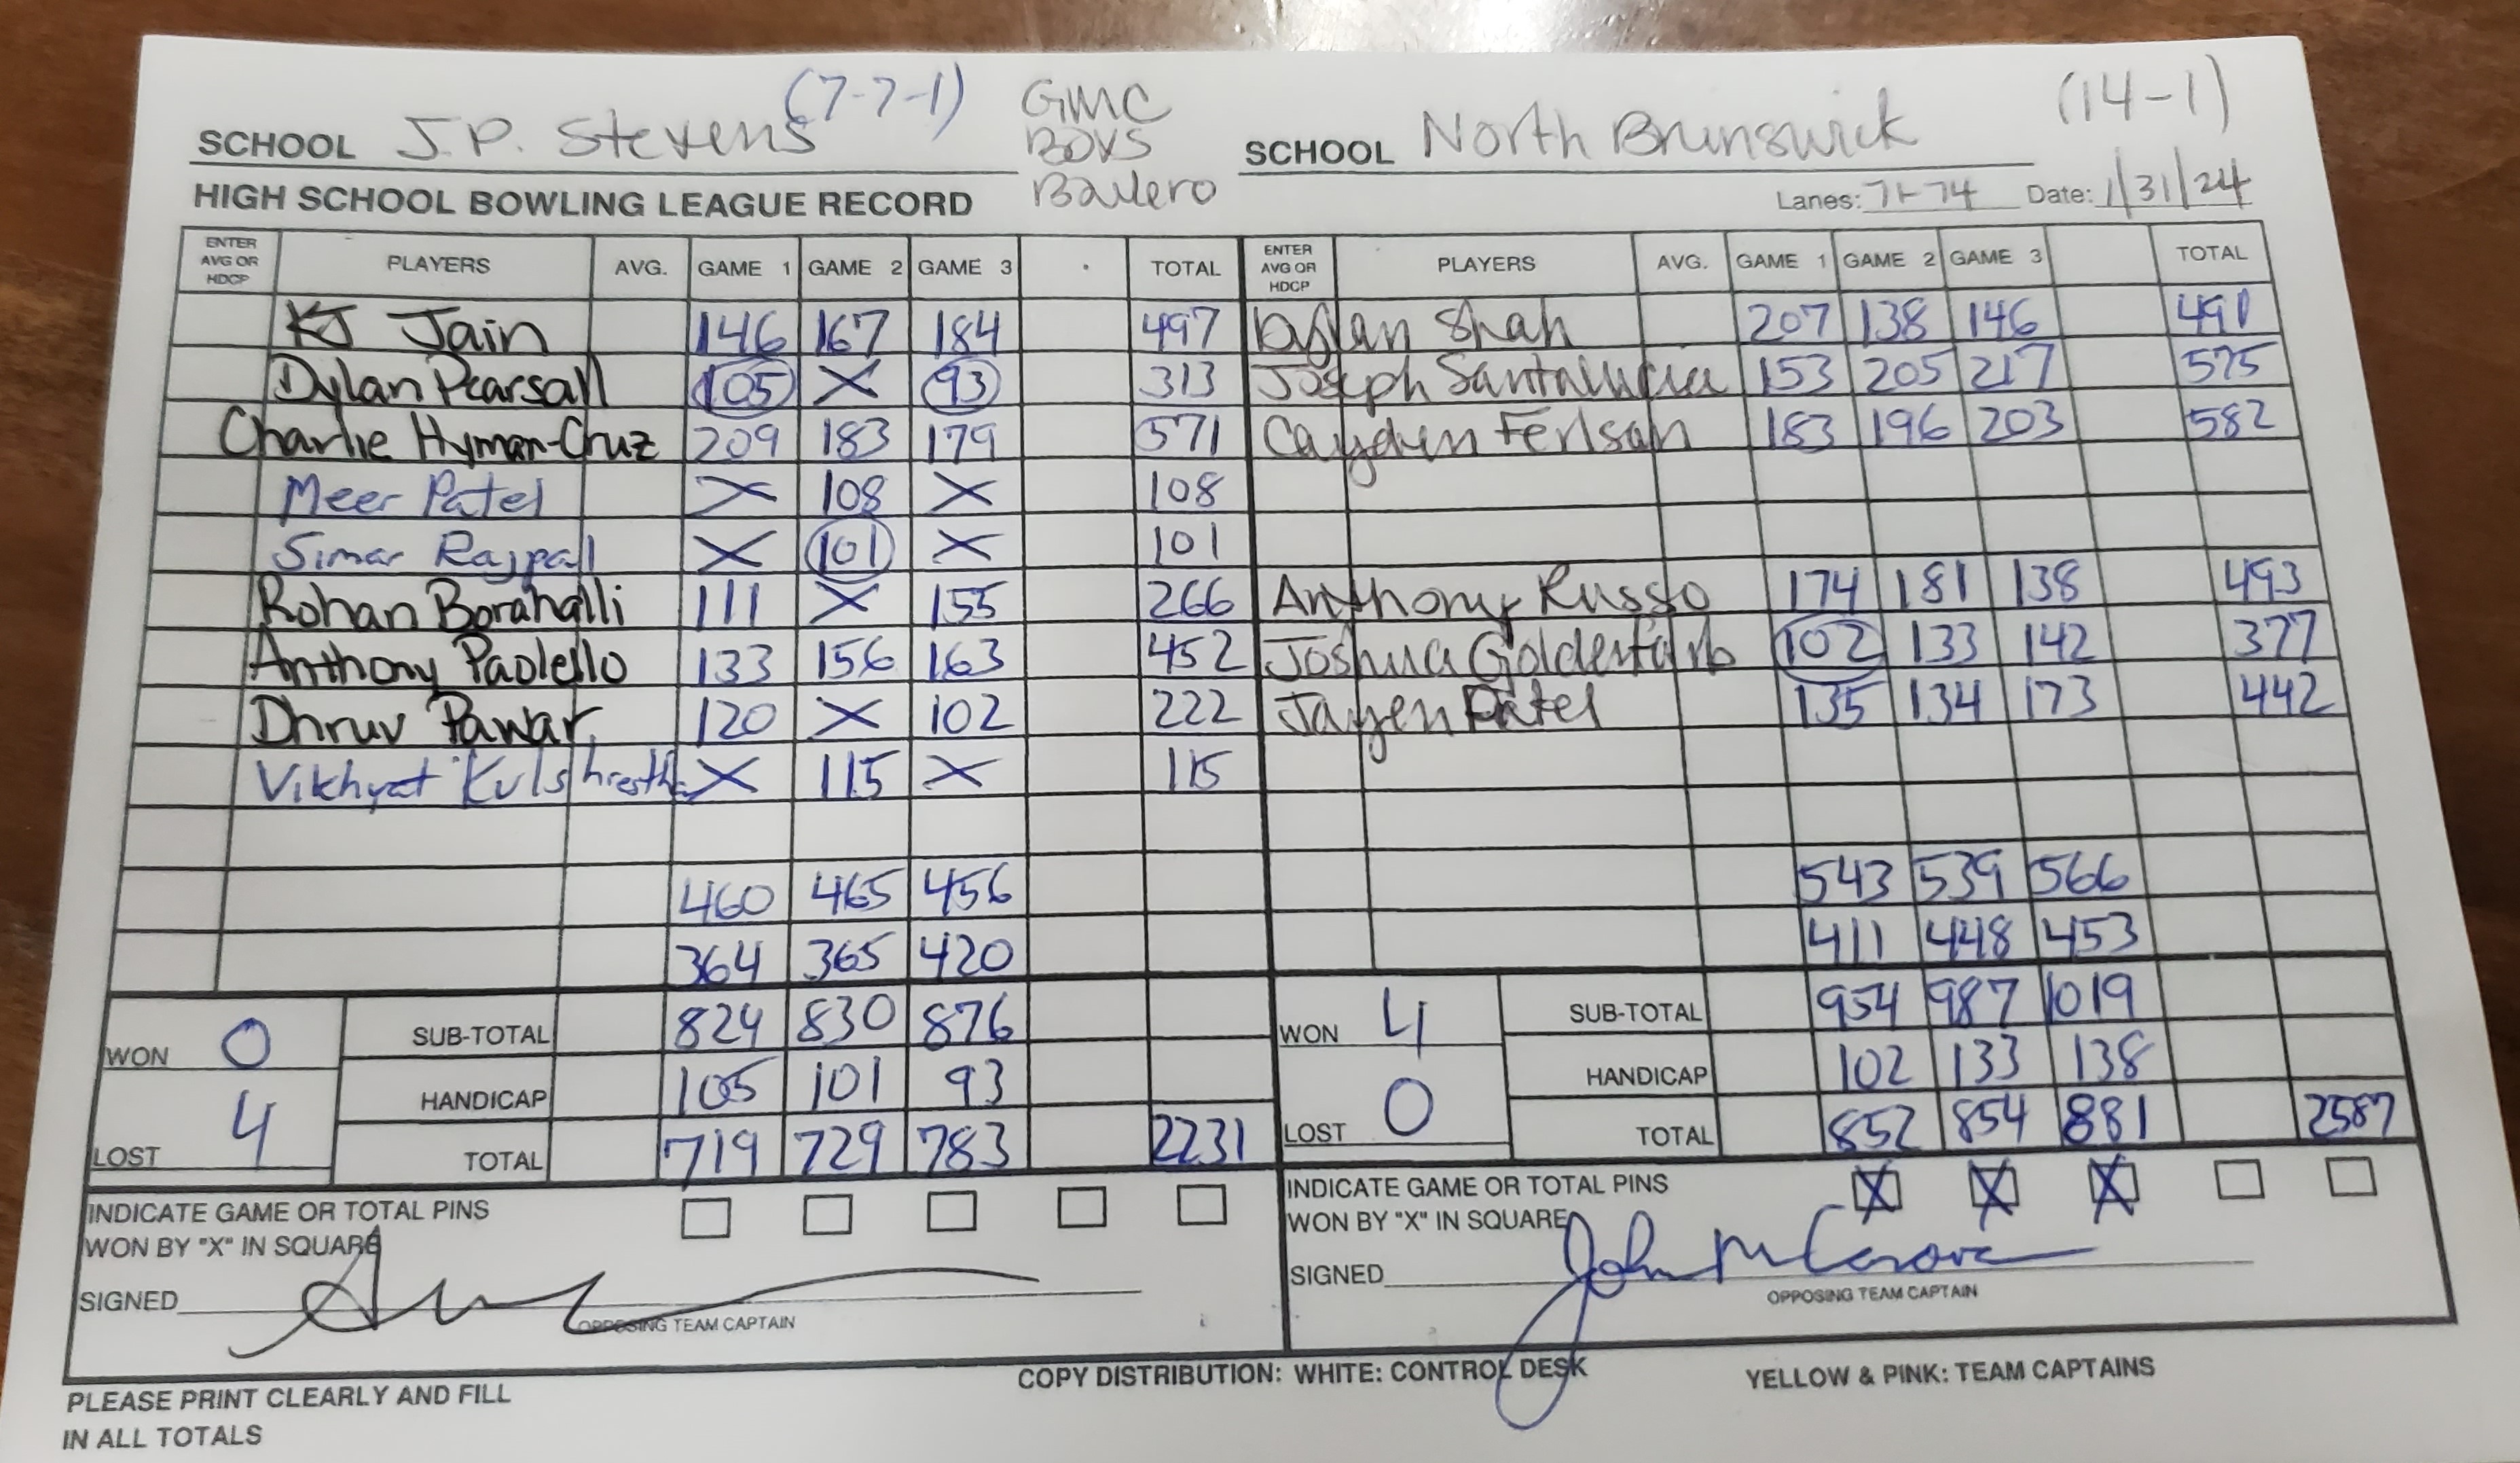 SCHOOL J.P. Stevens (7-7-1) GMC BOYS Ballero SCHOOL North Brunswick (14-1)
HIGH SCHOOL BOWLING LEAGUE RECORD Lanes: 71-74 Date: 1/31/24
ENTER AVG OR HDCP PLAYERS AVG. GAME 1 GAME 2 GAME 3 TOTAL ENTER AVG OR HDCP PLAYERS AVG. GAME 1 GAME 2 GAME 3 TOTAL
KJ Jain 146 167 184 497 Dylan Shah 207 138 146 491
Dylan Pearsall 105 X 93 313 Joseph Santalucia 153 205 217 575
Charlie Hyman-Cruz 209 183 179 571 Cayden Ferlsan 183 196 203 582
Meer Patel X 108 X 108
Simar Rajpal X 101 X 101
Rohan Borahalli 111 X 155 266 Anthony Russo 174 181 138 493
Anthony Paolello 133 156 163 452 Joshua Goldenfarb 102 133 142 377
Dhruv Pawar 120 X 102 222 Jayen Patel 135 134 173 442
Vikhyat Kulshresth X 115 X 115
460 465 456 543 539 566
364 365 420 411 448 453
WON 0 SUB-TOTAL 824 830 876 WON 4 SUB-TOTAL 954 987 1019
HANDICAP 105 101 93 HANDICAP 102 133 138
LOST 4 TOTAL 719 729 783 2231 LOST 0 TOTAL 852 854 881 2587
INDICATE GAME OR TOTAL PINS INDICATE GAME OR TOTAL PINS X X X
WON BY "X" IN SQUARE WON BY "X" IN SQUARE
SIGNED SIGNED John
OPPOSING TEAM CAPTAIN OPPOSING TEAM CAPTAIN
PLEASE PRINT CLEARLY AND FILL COPY DISTRIBUTION: WHITE: CONTROL DESK YELLOW & PINK: TEAM CAPTAINS
IN ALL TOTALS